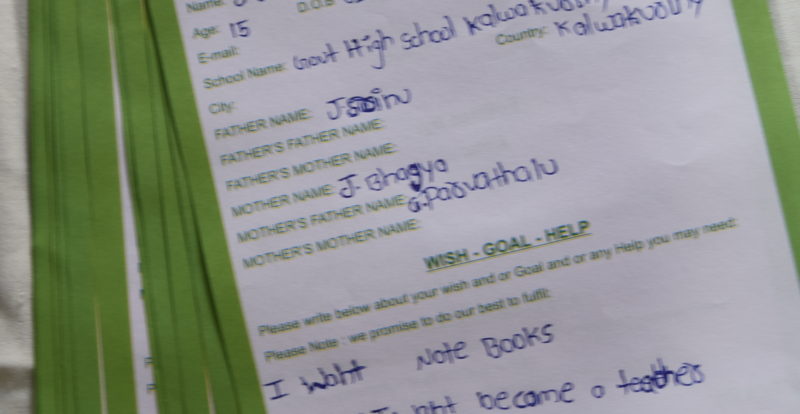 Name:
D.O.B
Age: 15
E-mail:
School Name: Govt High School Kalwakurthy
City: Country: Kalwakurthy
FATHER NAME: J. Srinu
FATHER'S FATHER NAME:
FATHER'S MOTHER NAME:
MOTHER NAME: J. Bhagya
MOTHER'S FATHER NAME: G. Parvathalu
MOTHER'S MOTHER NAME:
WISH - GOAL - HELP
Please write below about your wish and or Goal and or any Help you may need:
Please Note : we promise to do our best to fulfil:
I Waht Note Books
become a teather